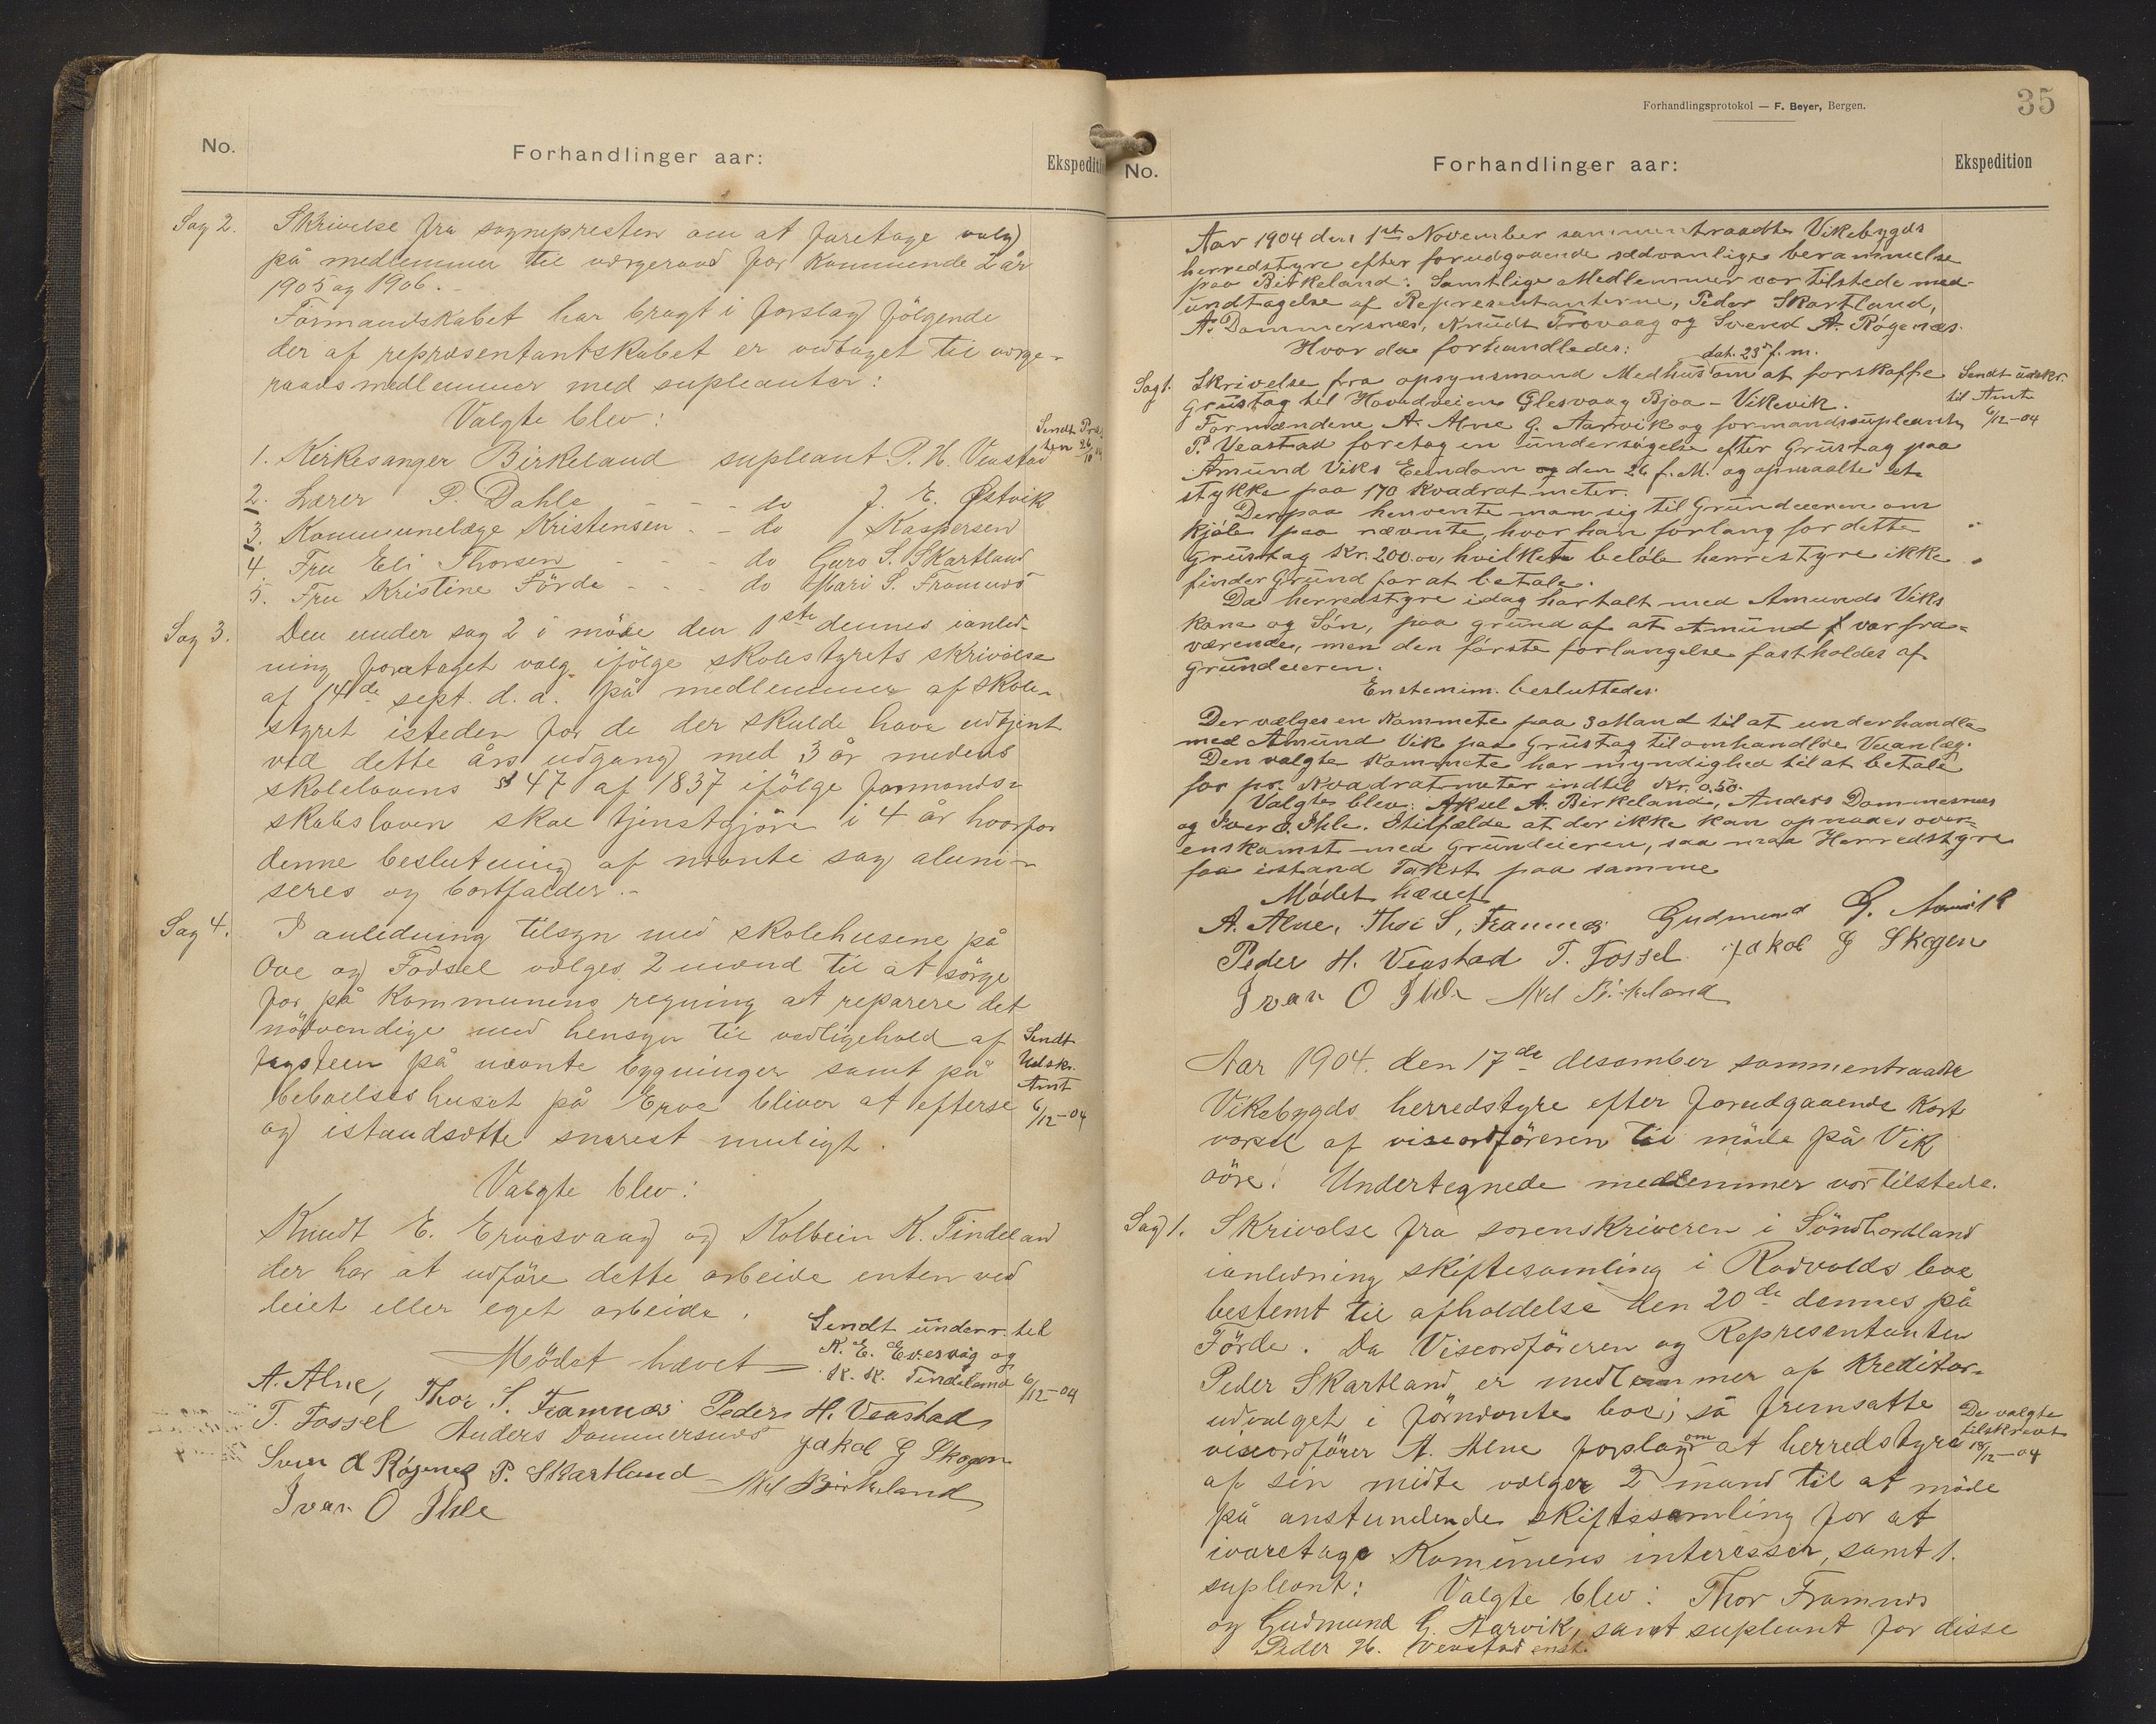 No.
Forhandlinger aar:
Sag 2.
Skrivelse fra sognepresten om at foretage valg
på medlemmer til værgeraad for kommende 2 år
1905 og 1906.
Formandskabet har bragt i forslag følgende
der af repræsentantskabet er vedtaget til værge-
raadsmedlemmer med supleanter:
Valgte blev:
1. Kirkesanger Birkeland supleant P. H. Veastad
2. Lærer P. Dahle - - - do J. E. Østvik
3. Kommunelæge Kristensen - - do Kaspersen
4. Fru Eli Thorsen - - - do Guro S. Skartland
5. Fru Kristine Förde - - - do Mari S. Framnæs
Sag 3.
Den under sag 2 i møde den 1ste dennes ianled-
ning foretaget valg ifölge skolestyrets skrivelse
af 14de sept. d. a. på medlemmer af skole-
styret isteden for de der skulde have udtjent
ved dette års udgang med 3 år medens
skolelovens § 47 af 1837 ifölge formands-
skabsloven skal tjenstgjøre i 4 år hvorfor
denne beslutning af nævnte sag
seres og bortfalder.-
Sag 4.
I anledning tilsyn med skolehusene på
Ove og Fodsel vælges 2 mænd til at sörge
for på Kommunens regning at reparere det
nödvendige med hensyn til vedligehold af
på nævnte bygninger samt på
beboelseshuset på Erve bliver at efterse
og istandsætte snarest muligt.
Sendt
Udskr.
Amt
6/12-04
Valgte blev:
Knudt E. Ervesvaag og Kolbein K. Tindeland
der har at udföre dette arbeide enten ved
leiet eller eget arbeide.
Sendt underr. til
K. E. Ervesvåg og
K. K. Tindeland 6/12-04
Mödet hævet
A. Alne, Thor S. Framnæs Peder H. Veastad
T. Fossel Anders Dommersnæs Jakob G Skogen
Sven A Røgenes P. Skartland Aksel Birkeland
Ivar O Ihle
Forhandlingsprotokol — F. Beyer, Bergen.
35
No.
Forhandlinger aar:
Ekspedition
Aar 1904 den 1ste November sammentraadte Vikebygds
herredstyre efter forudgaaende sædvanlige berammelse
paa Birkeland. Samtlige Medlemmer var tilstede med
undtagelse af Representanterne, Peder Skartland,
A. Dommersnæs, Knudt Trovaag og Svend A. Røgenæs.
Hvor da forhandledes:
Sag 1.
Skrivelse fra opsynsmand Medhus dat. 23de f. m. om at forskaffe
Grustag til Hovedveien Ølesvaag Bjoa - Vikevik.
Sendt udskr.
til Amt
6/12-04
Formændene A. Alne G. Aarvik og formandssupleanten
P. Veastad foretog en undersøgelse efter Grustag paa
Amund Viks Eiendom den 26 f. M. og opmaalte et
stykke paa 170 Kvadratmeter.
Derpaa henvente man sig til Grundeieren om
kjøb paa nævnte, hvor han forlang for dette
Grustag Kr. 200.00, hvilket beløb herrestyre ikke
finder Grund for at betale.
Da herredstyre idag har talt med Amunds Viks
Kone og Søn, paa grund af at Amund var fra-
værende, men den første forlangelse fastholdes af
Grundeieren.
Enstemim. besluttedes:
Der vælges en Kommete paa 3 Mand til at underhandle
med Amund Vik paa Grustag til omhandlde Veianlæg.
Den valgte Kommete har myndighed til at betale
for pr. Kvadratmeter indtil Kr. 0.50.
Valgte blev: Aksel A. Birkeland, Anders Dommesnæs
og Iver O. Ihle. Itilfælde at der ikke kan opnaaes over-
enskomst med Grundeieren, saa maa Herredstyre
faa istand Takst paa samme
Mødet hævet
A. Alne, Thor S. Framnæs Gudmund G. Aarvik
Peder H. Veastad T. Fossel Jakob G Skogen
Ivar O Ihle Aksel Birkeland
Aar 1904. den 17de desember sammentraadte
Vikebygds herredstyre efter forudgaaende kort
varsel af viseordföreren til möde på Vik
öøre. Undertegnede medlemmer var tilstede.
Sag 1.
Skrivelse fra sorenskriveren i Söndhordland
ianledning skiftesamling i Rødvolds boe
bestemt til afholdelse den 20de dennes på
Förde. Da Viseordföreren og Representanten
Peder Skartland er medlemmer af kreditor-
udvalget i förnævnte boe; så fremsatte
viseordförer A. Alne forslag om at herredstyre
af sin midte vælger 2 mand til at möde
på anstundende skiftessamling for at
ivaretage Komunens interesser, samt 1.
supleant: Valgte blev: Thor Framnæs
og Gudmund G. Aarvik, samt supleant for disse
Peder H. Veastad enst.
De valgte
tilskrevet
18/12-04